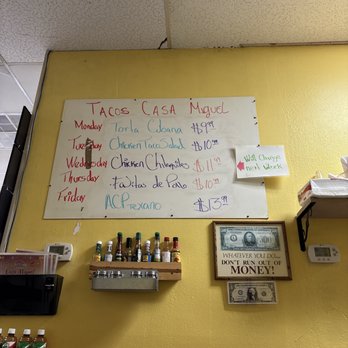 TACOS CASA Miguel
Monday Torta Cubana $9.99
Tuesday Chicken Taco Salad $10.99
Wednesday Chicken Chilaquiles $11.99
Thursday Fajitas de Pollo $10.99
Friday ACP Texano $13.99
Will Change
next Week
WHATEVER YOU DO...
DON'T RUN OUT OF
MONEY!